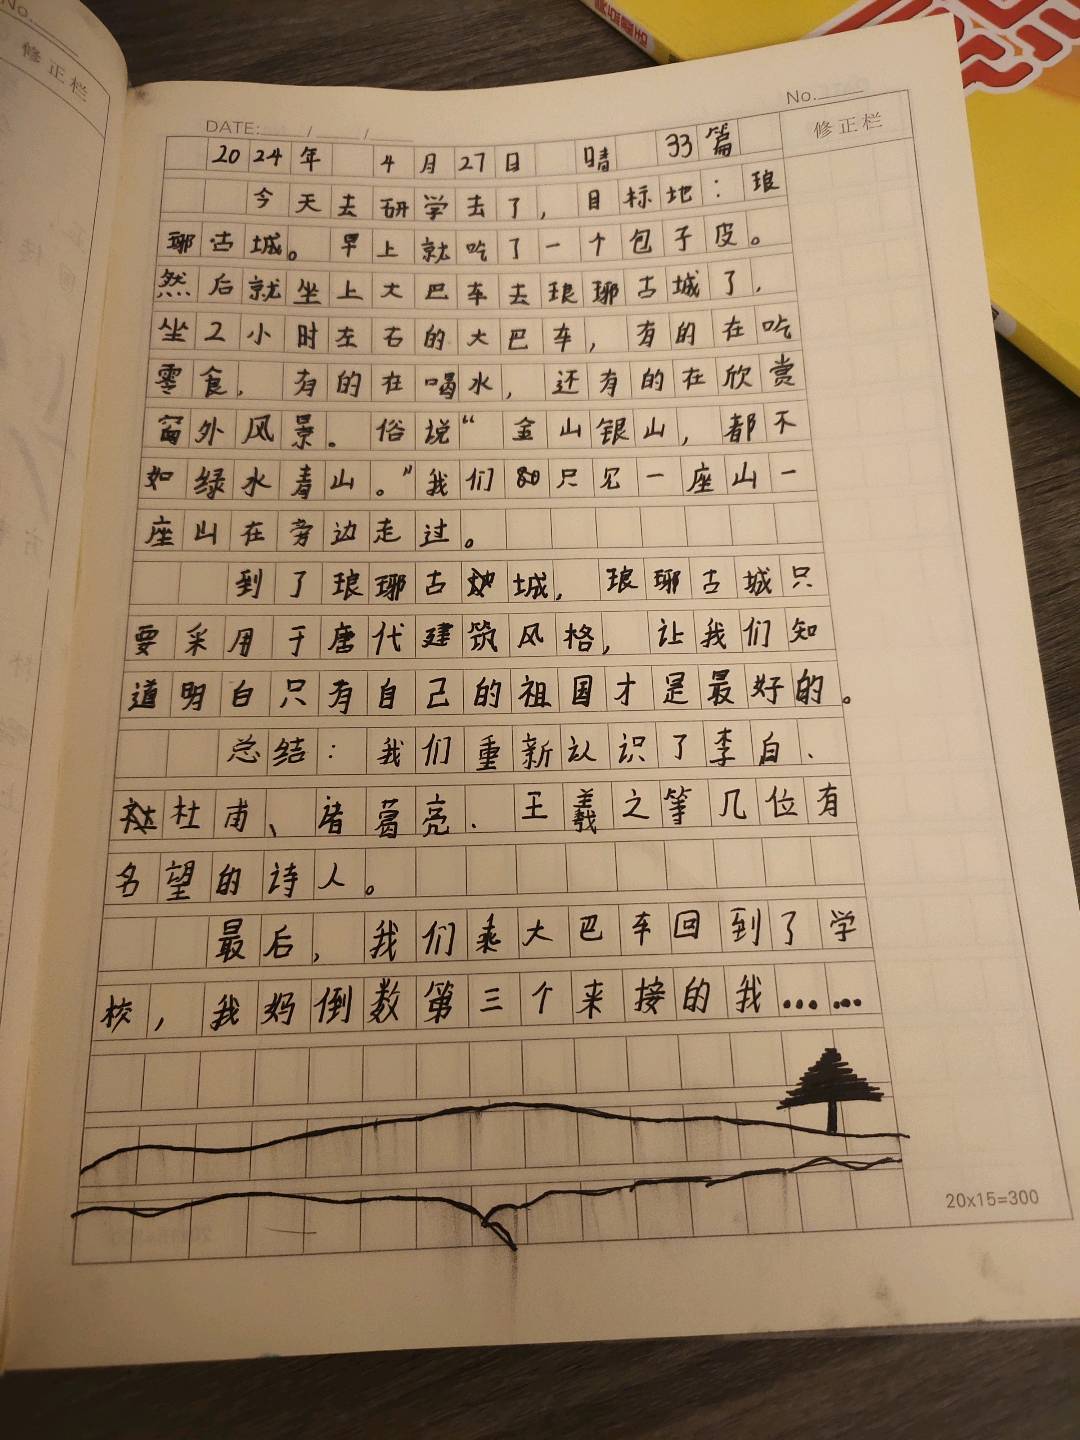 No.
修正栏
No.
修正栏
DATE: / /
2024年 4月27日 晴 33篇
今天去研学去了，目标地：琅
琊古城。早上就吃了一个包子皮。
然后就坐上大巴车去琅琊古城了，
坐2小时左右的大巴车，有的在吃
零食，有的在喝水，还有的在欣赏
窗外风景。俗说“金山银山，都不
如绿水青山。”我们只见一座山一
座山在旁边走过。
到了琅琊古城，琅琊古城只
要采用于唐代建筑风格，让我们知
道明白只有自己的祖国才是最好的。
总结：我们重新认识了李白、
杜甫、诸葛亮、王羲之等几位有
名望的诗人。
最后，我们乘大巴车回到了学
校，我妈倒数第三个来接的我……
20x15=300